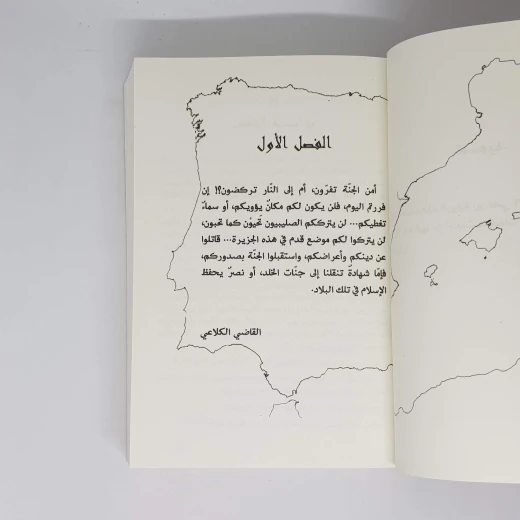 الفصل الأول
أمن الجنّة تفرّون، أم إلى النّار تركضون؟! إن
فررتم اليوم، فلن يكون لكم مكانٌ يؤويكم، أو سماءٌ
تغطيكم... لن يترككم الصليبيون تحيَوْن كما تحبون،
لن يتركوا لكم موضع قدم في هذه الجزيرة... قاتلوا
عن دينكم وأعراضكم، واستقبلوا الجنّة بصدوركم،
فإمّا شهادةٌ تنقلنا إلى جنّات الخلد، أو نصرٌ يحفظ
الإسلام في تلك البلاد.
القاضي الكلاعي